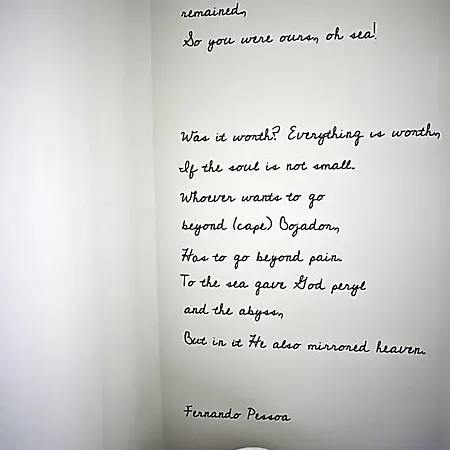 remained,
So you were ours, oh sea!
Was it worth? Everything is worth,
If the soul is not small.
Whoever wants to go
beyond (cape) Bojadon,
Has to go beyond pain.
To the sea gave God peryl
and the abyss,
But in it He also mirrored heaven.
Fernando Pessoa